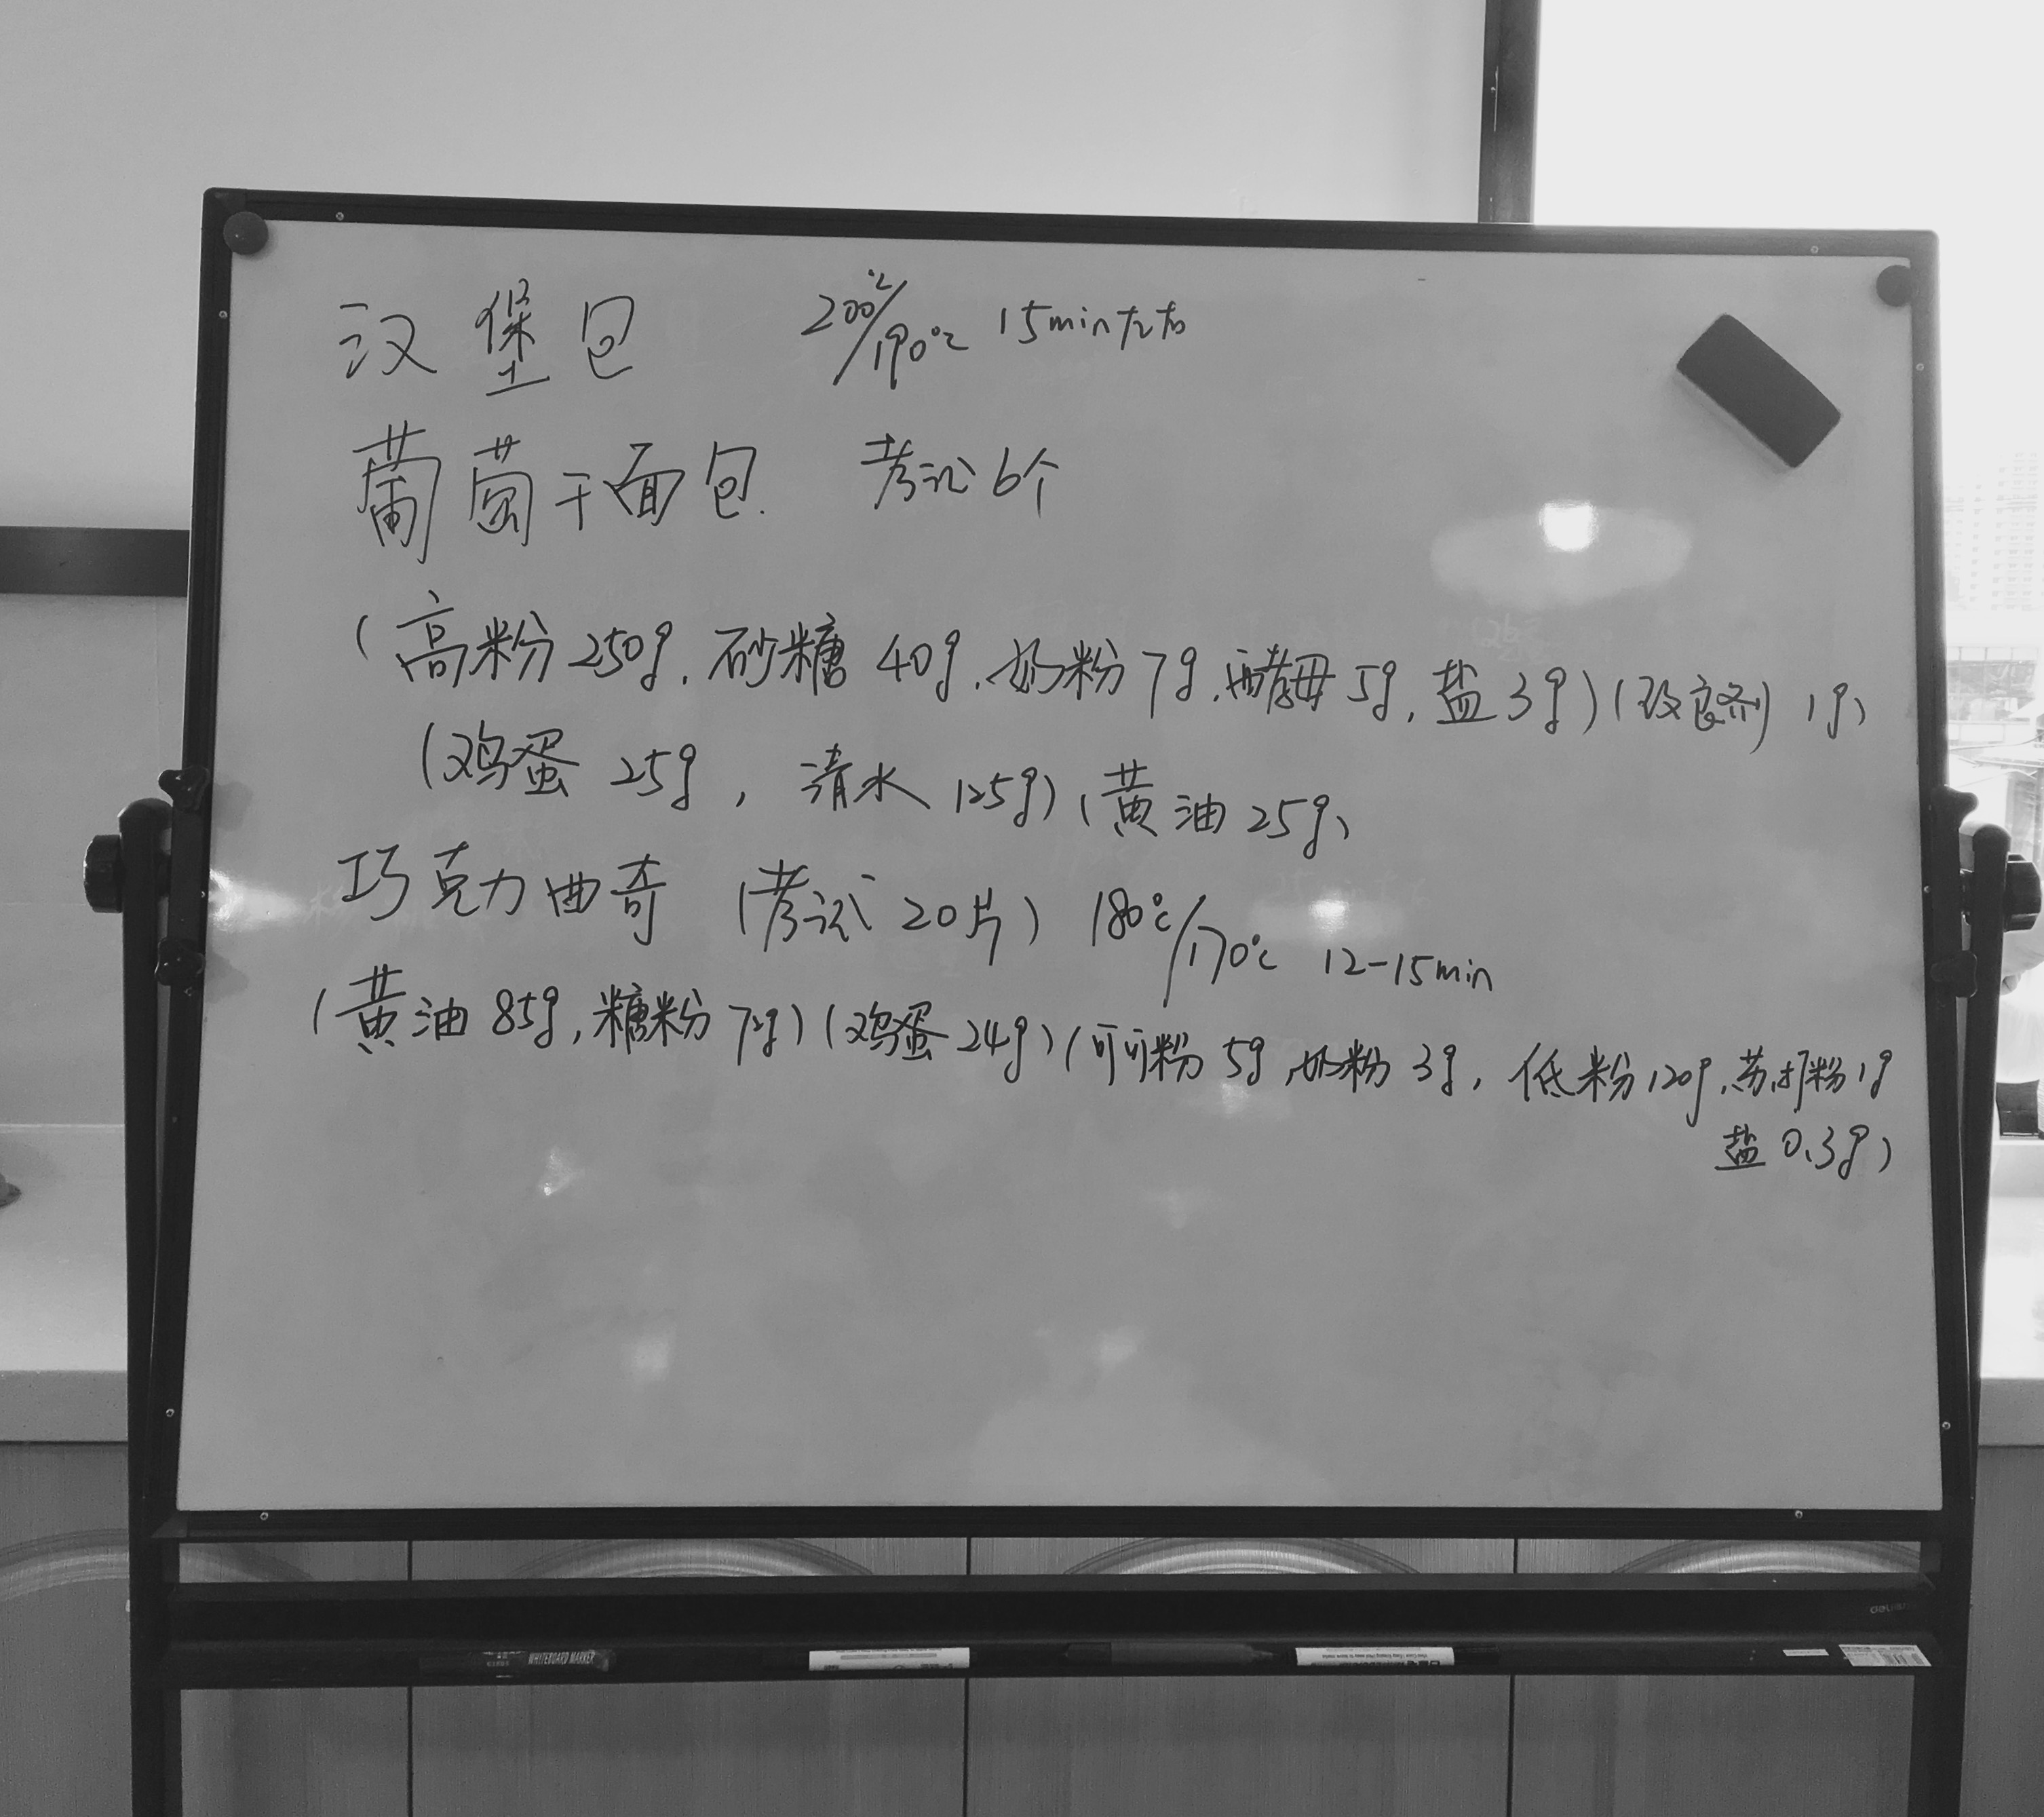 汉堡包 200℃/190℃ 15min左右
葡萄干面包. 考试6个
(高粉250g,砂糖40g,奶粉7g,酵母5g,盐3g)(改良剂1g)
(鸡蛋25g,清水125g)(黄油25g)
巧克力曲奇 (考试20片) 180℃/170℃ 12-15min
(黄油85g,糖粉72g)(鸡蛋24g)(可可粉5g,奶粉3g,低粉120g,苏打粉1g
盐0.3g)
WHITEBOARD MARKER
deli